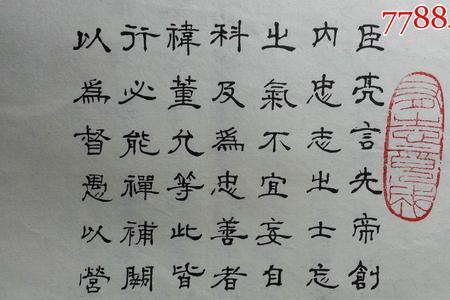 7788
臣亮言先帝創
内忠志之士忘
之氣不宜妄自
科及為忠善者
禕董允等此皆
行必能裨補闕
以為督愚以營